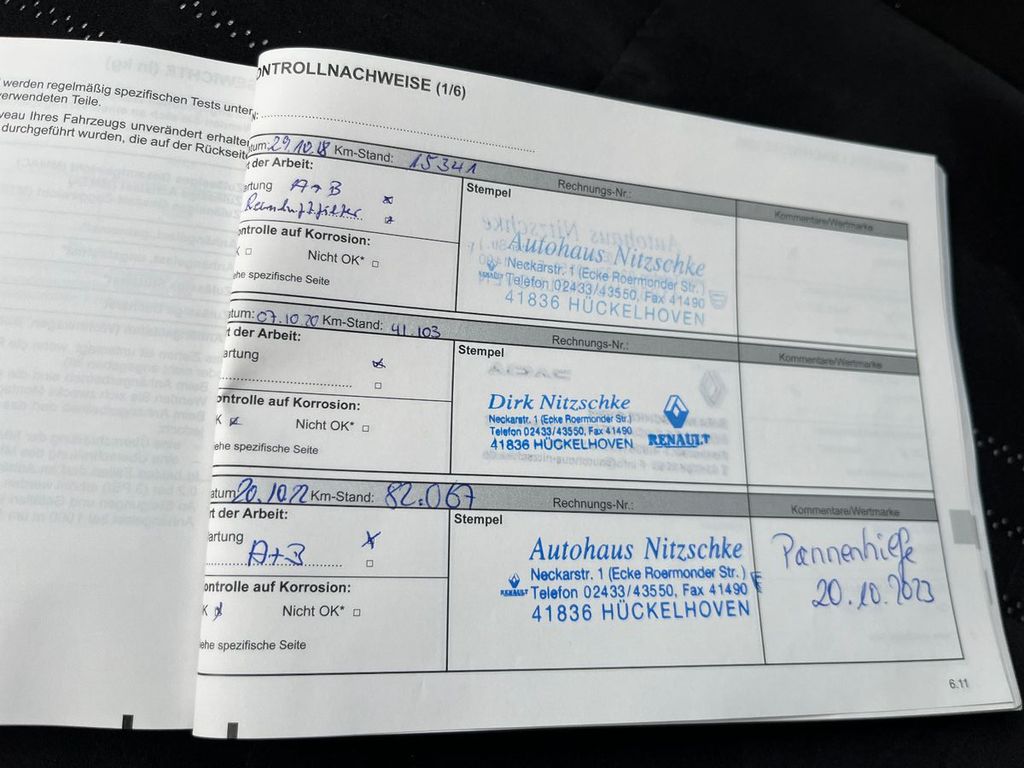 werden regelmäßig spezifischen Tests unter
verwendeten Teile.
veau Ihres Fahrzeugs unverändert erhalte
durchgeführt wurden, die auf der Rückseit
ONTROLLNACHWEISE (1/6)
N:
tum: 29.10.18 Km-Stand: 15341
Rechnungs-Nr.:
Kommentare/Wertmarke
t der Arbeit:
artung A+B
Reinluftfilter
ontrolle auf Korrosion:
K Nicht OK*
ehe spezifische Seite
Stempel
Autohaus Nitzschke
Neckarstr. 1 (Ecke Roermonder Str.)
RENAULT Telefon 02433/43550, Fax 41490
41836 HÜCKELHOVEN
atum: 07.10.20 Km-Stand: 41.103
Rechnungs-Nr.:
Kommentare/Wertmarke
t der Arbeit:
artung
ontrolle auf Korrosion:
K Nicht OK*
ehe spezifische Seite
Stempel
Dirk Nitzschke
Neckarstr. 1 (Ecke Roermonder Str.)
Telefon 02433/43550, Fax 41490
41836 HÜCKELHOVEN
RENAULT
atum: 20.10.22 Km-Stand: 82.067
Rechnungs-Nr.:
Kommentare/Wertmarke
rt der Arbeit:
artung
A+B
ontrolle auf Korrosion:
K Nicht OK*
ehe spezifische Seite
Stempel
Autohaus Nitzschke
Neckarstr. 1 (Ecke Roermonder Str.)
RENAULT Telefon 02433/43550, Fax 41490
41836 HÜCKELHOVEN
Pannenhilfe
20.10.2023
6.11